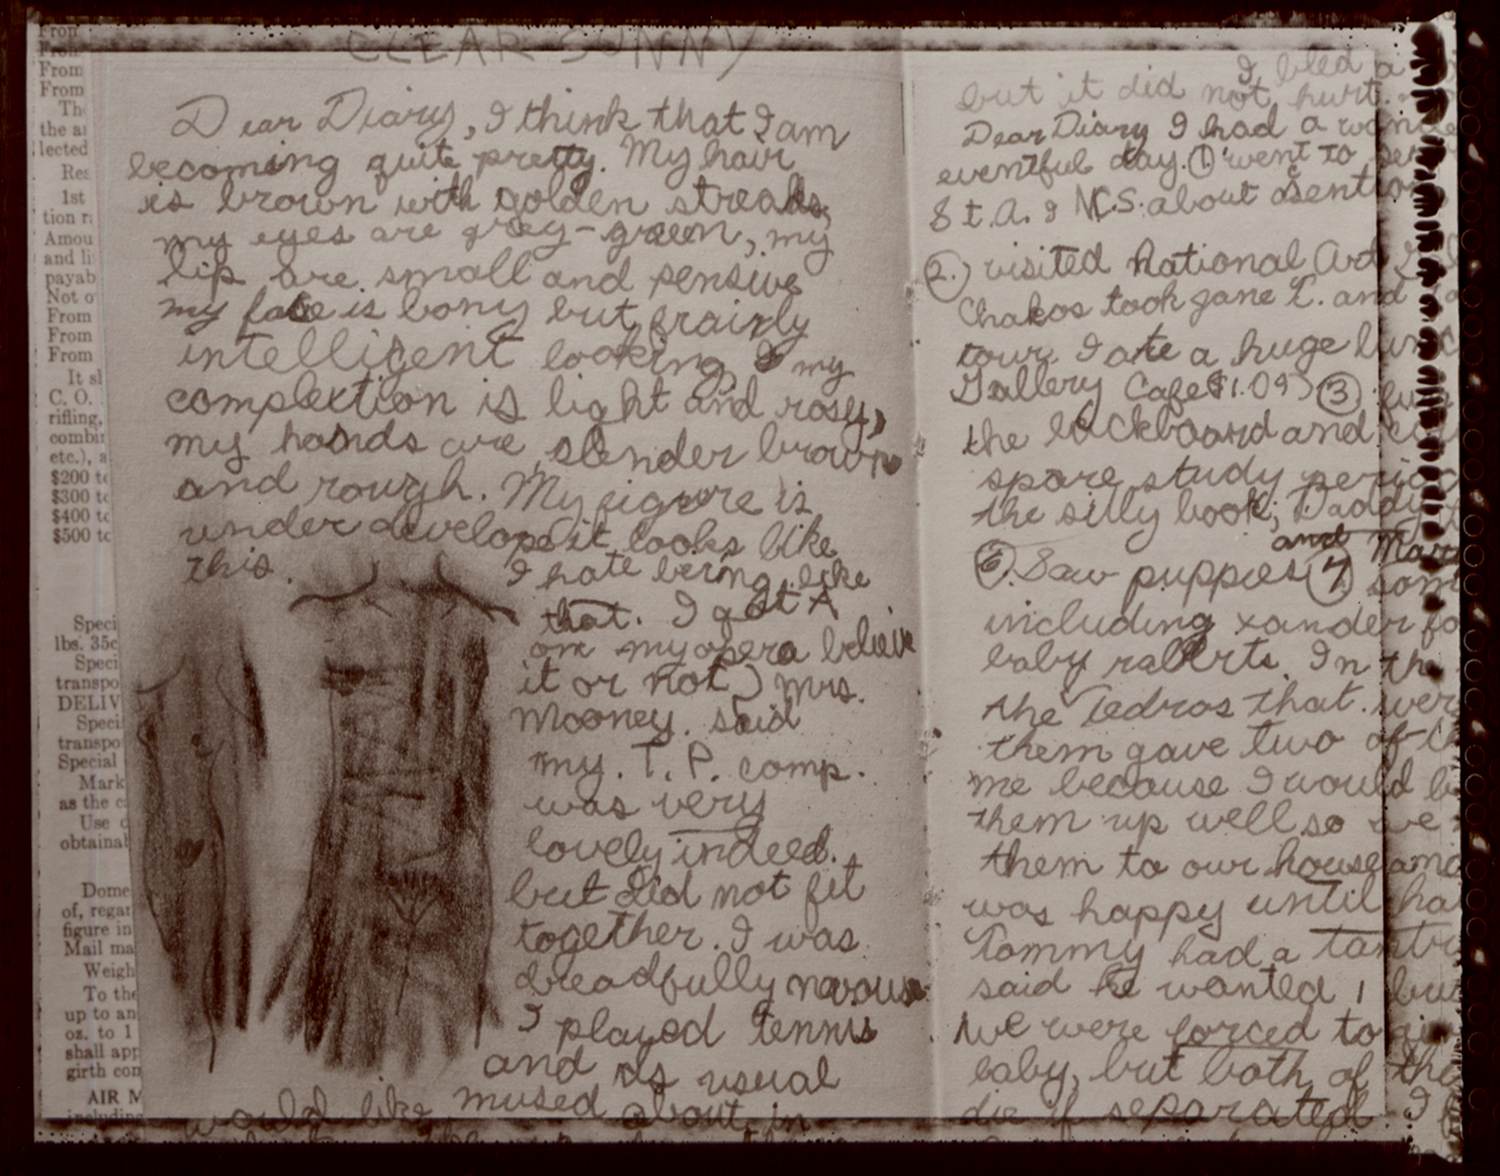 From
From
From
From
Th
the a
lected
Re
1st
tion r
Amou
and li
payab
Not o
From
From
From
It sl
C. O.
rifling,
combi
etc.), a
$200 t
$300 t
$400 t
$500 t
Speci
lbs. 35c
Speci
transpo
DELIV
Speci
transpo
Special
Mark
as the c
Use
obtainal
Dome
of, regar
figure in
Mail ma
Weigh
To the
up to an
oz. to 1
shall app
girth con
AIR M
including
CLEAR SUNNY
Dear Diary, I think that I am
becoming quite pretty. My hair
is brown with golden streaks,
my eyes are grey-green, my
lip are small and pensive
my face is bony but frairly
intelligent looking, my
complextion is light and rosy,
my hands are slender brown
and rough. My figure is
under develope it looks like
this.
I hate being like
that. I got A
on my opera believe
it or not) Mrs.
Mooney. said
my. T. P. comp.
was very
lovely indeed.
but did not fit
together. I was
dreadfully nervous
I played tennis
and as usual
mused about in
would like
I bled a
but it did not hurt.
Dear Diary I had a wonde
eventful day. ① went to
S t. A. & N.C.S. about
②.) visited National Art
Chakos took Jane T. and
tour. I ate a huge lunc
Gallery Cafe $1.09) ③
the blackboard and
spare study period
the silly book, Daddy
and Mar
⑥. Saw puppies ④ som
including xander fo
baby rabbits. In the
the Tedros that. wer
them gave two of th
me because I would b
them up well so we
them to our house and
was happy until ha
Tommy had a tantr
said he wanted 1 but
We were forced to gi
baby, but both of the
die if separated. I